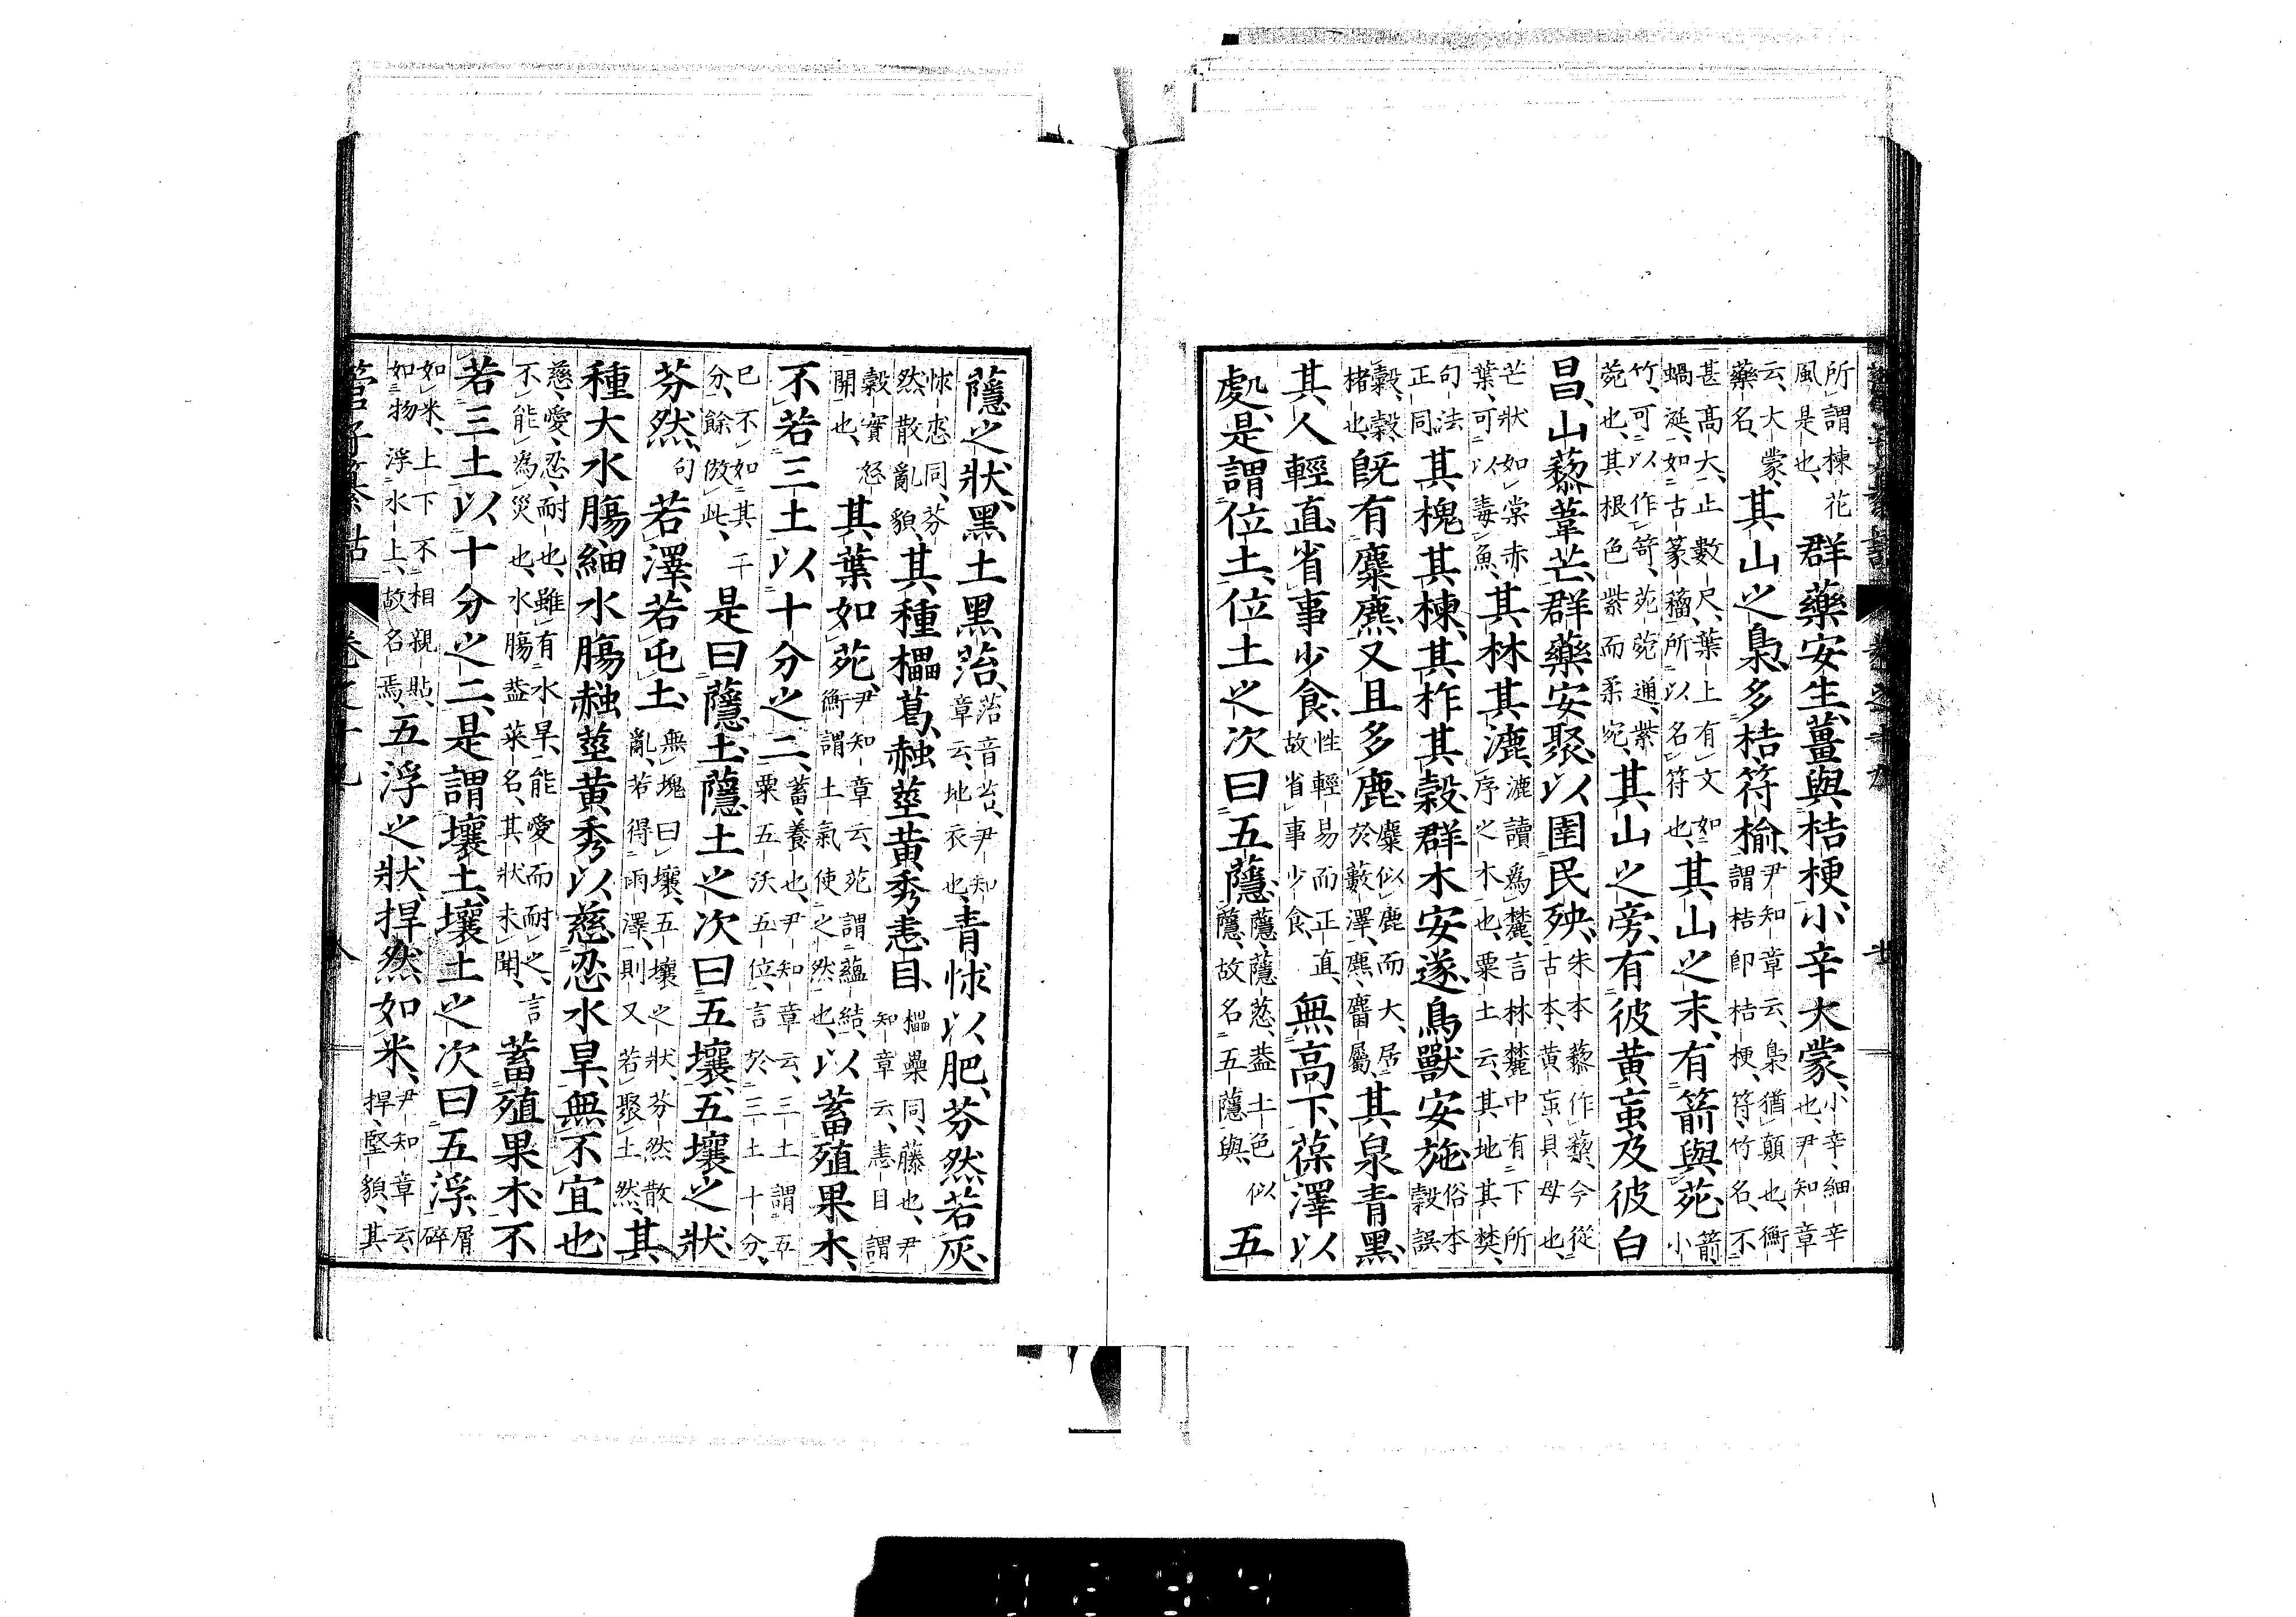 所謂楝花風是也、群藥安生、薑與桔梗、小辛大蒙、小辛細辛也、尹知章
云、大蒙藥名、其山之梟、多桔符楡、尹知章云、梟猶顛也、衡謂桔卽桔梗、符、竹名、不
甚高大、止數尺、葉上有文如蝸涎、如古篆籀、所以名符也、其山之末、有箭與苑、箭小
竹、可以作笴、苑菀通、紫菀也、其根色紫而柔宛、其山之旁、有彼黄䖟及彼白
昌、山藜葦芒、群藥安聚、以圉民殃、朱本藜作蔾、今從古本、黄䖟、貝母也、
芒狀如棠、赤葉、可以毒魚、其林其漉、漉讀爲麓、言林麓中有下所序之木也、粟土云、其地其樊、
句法正同、其槐其楝、其柞其穀、群木安遂、鳥獸安施、俗本穀誤
穀、穀、楮也、旣有麋麃、又且多鹿、麋似鹿而大、居於藪澤、麃、麕屬、其泉青黑、
其人輕直、省事少食、性輕易而正直、故省事少食、無高下、葆澤以
處、是謂位土、位土之次曰五蘟、蘟、蘟荵、蓋土色似蘟、故名五蘟與、五
蘟之狀、黑土黑菭、菭音苔、尹知章云、地衣也、青怵以肥、芬然若灰、
怵㤕同、芬然、散亂貌、其種櫑葛、赨莖黄秀恚目、櫑櫐同、藤也、尹知章云、恚目謂
穀實怒開也、其葉如苑、尹知章云、苑謂蘊結、衡謂土氣使之然也、以蓄殖果木、
不若三土以十分之二、蓄、養也、尹知章云、三土謂五粟五沃五位、言於三土十分、
已不如其二分、餘倣此、是曰蘟土、蘟土之次曰五壤、五壤之狀、
芬然句若澤、若屯土、無塊曰壤、五壤之狀、芬然散亂、若得雨澤、則又若聚土然、其
種大水腸細水腸、赨莖黄秀以慈、忍水旱、無不宜也、
慈、愛、忍、耐也、雖有水旱、能愛而耐之、言不能為災也、水腸蓋菜名、其狀未聞、蓄殖果木、不
若三土以十分之二、是謂壤土、壤土之次曰五浮、屑碎
如米、上下不相親貼、如物浮水上、故名焉、五浮之狀、捍然如米、尹知章云、捍、堅貌、其
管子纂詁 卷之十九